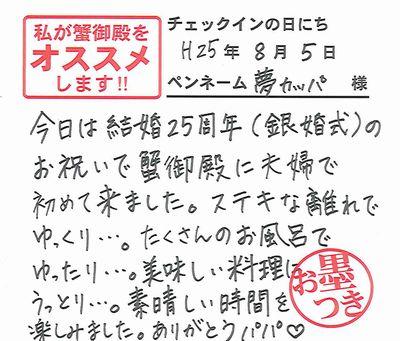 私が蟹御殿を
オススメ
します!!
チェックインの日にち
H25年 8月 5日
ペンネーム 夢カッパ 様
今日は結婚25周年(銀婚式)の
お祝いで蟹御殿に夫婦で
初めて来ました。ステキな離れで
ゆっくり…。たくさんのお風呂で
ゆったり…。美味しい料理に
うっとり…。素晴しい時間を
楽しみました。ありがとうパパ♡
お墨
つき